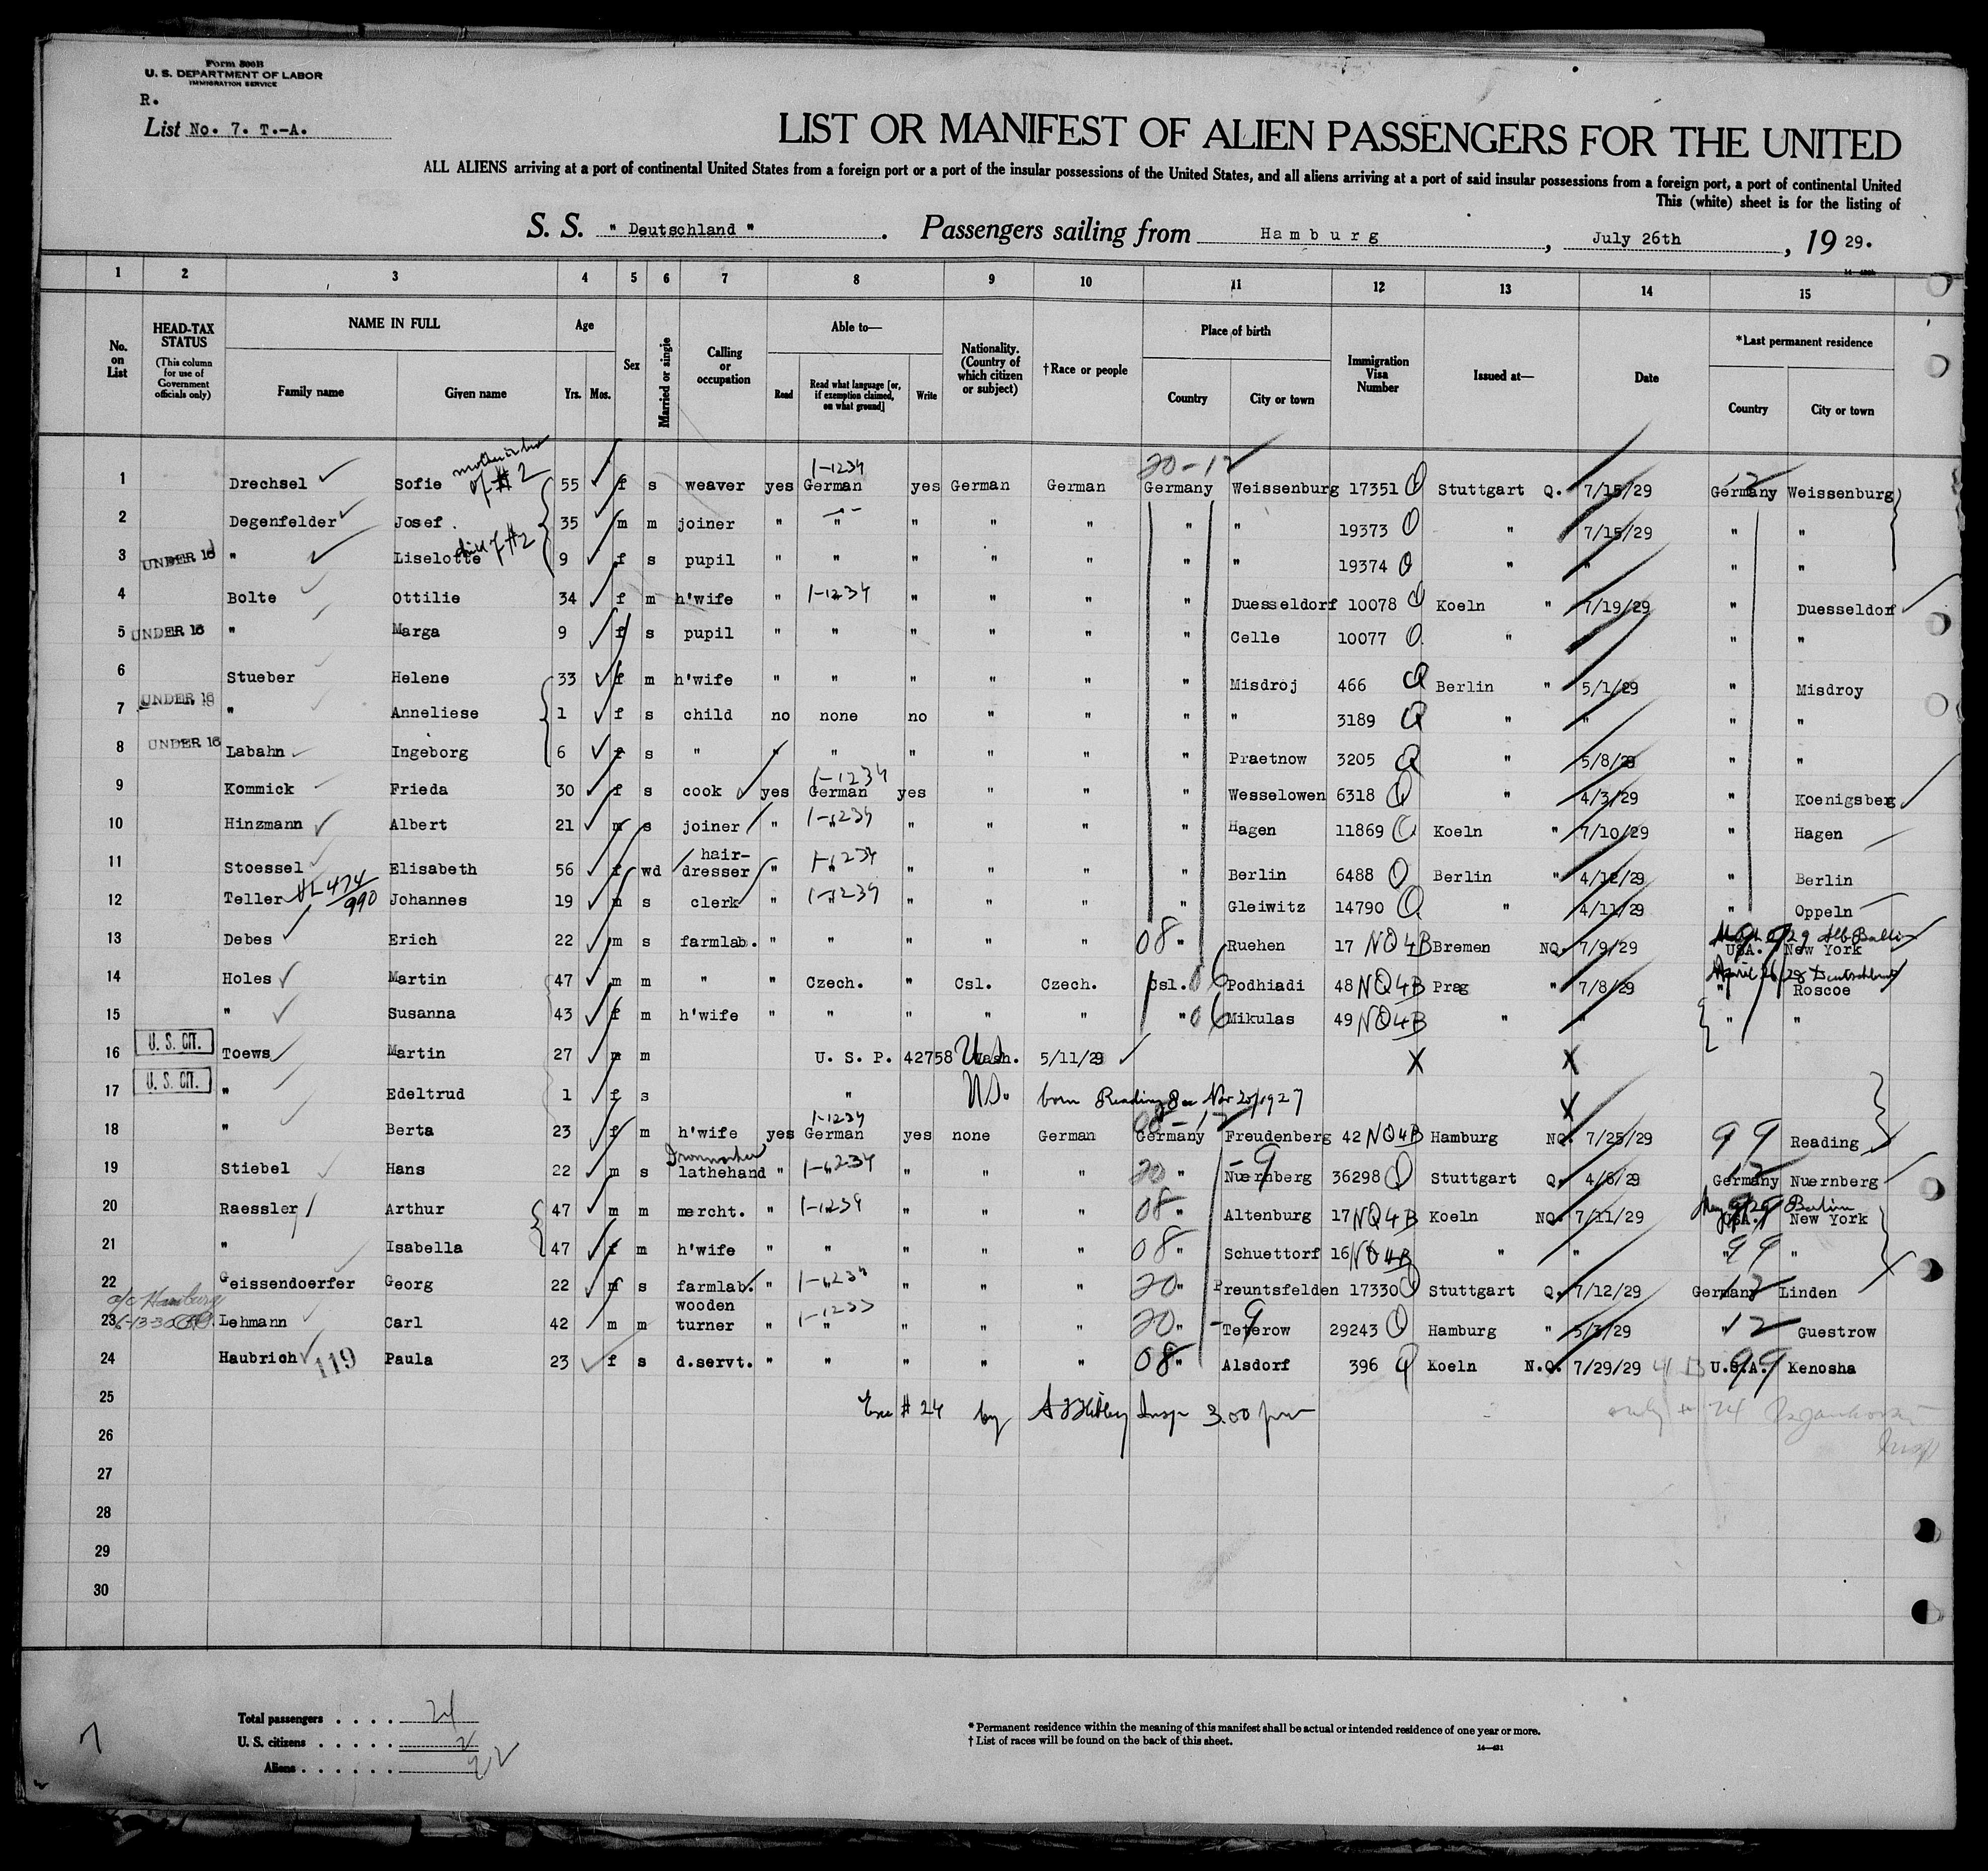 Form 500B
U. S. DEPARTMENT OF LABOR
IMMIGRATION SERVICE
R.
List No. 7. T.-A.
LIST OR MANIFEST OF ALIEN PASSENGERS FOR THE UNITED
ALL ALIENS arriving at a port of continental United States from a foreign port or a port of the insular possessions of the United States, and all aliens arriving at a port of said insular possessions from a foreign port, a port of continental United
This (white) sheet is for the listing of
S. S. " Deutschland ". Passengers sailing from Hamburg, July 26th, 19 29.
1 2 3 4 5 6 7 8 9 10 11 12 13 14 15
No. on List
HEAD-TAX STATUS
(This column for use of Government officials only)
NAME IN FULL
Family name Given name
Age
Yrs. Mos.
Sex
Married or single
Calling or occupation
Able to—
Read Read what language [or, if exemption claimed, on what ground] Write
Nationality. (Country of which citizen or subject)
†Race or people
Place of birth
Country City or town
Immigration Visa Number
Issued at—
Date
*Last permanent residence
Country City or town
mother in law of #2
1-1234
20-12
12
1 Drechsel Sofie 55 f s weaver yes German yes German German Germany Weissenburg 17351 Q Stuttgart Q. 7/15/29 Germany Weissenburg
2 Degenfelder Josef 35 m m joiner " " " " " " " 19373 Q " 7/15/29 " "
3 UNDER 16 " Liselotte child of #2 9 f s pupil " " " " " " " 19374 Q " " " "
4 Bolte Ottilie 34 f m h'wife " 1-1234 " " " " Duesseldorf 10078 Q Koeln " 7/19/29 " Duesseldorf
5 UNDER 16 " Marga 9 f s pupil " " " " " " Celle 10077 Q " " " "
6 Stueber Helene 33 f m h'wife " " " " " " Misdroj 466 Q Berlin " 5/1/29 " Misdroy
7 UNDER 16 " Anneliese 1 f s child no none no " " " " 3189 Q " " " "
8 UNDER 16 Labahn Ingeborg 6 f s " " " " " " " Praetnow 3205 Q " 5/8/29 " "
1-1234
9 Kommick Frieda 30 f s cook yes German yes " " " Wesselowen 6318 Q " 4/3/29 " Koenigsberg
10 Hinzmann Albert 21 m s joiner " 1-1234 " " " " Hagen 11869 Q Koeln " 7/10/29 " Hagen
11 Stoessel Elisabeth 56 f wd hair-dresser " 1-1234 " " " " Berlin 6488 Q Berlin " 4/12/29 " Berlin
12 Teller 474/990 Johannes 19 m s clerk " 1-1234 " " " " Gleiwitz 14790 Q " 4/11/29 " Oppeln
13 Debes Erich 22 m s farmlab. " " " " " 08 " Ruehen 17 NQ4B Bremen NQ. 7/9/29 USA. 99 New York
April 26/28 Deutschland
14 Holes Martin 47 m m " " Czech. " Csl. Czech. Csl. 06 Podhiadi 48 NQ4B Prag " 7/8/29 " Roscoe
15 " Susanna 43 f m h'wife " " " " " " 06 Mikulas 49 NQ4B " " " "
16 U. S. CIT. Toews Martin 27 m m U. S. P. 42758 Wash. 5/11/29 X X
17 U. S. CIT. " Edeltrud 1 f s " U.S. born Reading Pa Nov 20/1927 X
1-1234
18 " Berta 23 f m h'wife yes German yes none German Germany Freudenberg 42 NQ4B Hamburg NQ. 7/25/29 99 Reading
19 Stiebel Hans 22 m s lathehand " 1-1234 " " " 20 " Nuernberg -9 36298 Q Stuttgart Q. 4/6/29 Germany 12 Nuernberg
20 Raessler Arthur 47 m m mercht. " 1-1234 " " " 08 " Altenburg 17 NQ4B Koeln NQ. 7/11/29 USA. 99 New York
21 " Isabella 47 f m h'wife " " " " " 08 " Schuettorf 16 NQ4B " " " 99 "
22 Geissendoerfer Georg 22 m s farmlab. " 1-1234 " " " 20 " Preuntsfelden 17330 Q Stuttgart Q. 7/12/29 Germany 12 Linden
o/c Hamburg 6-13-30
23 Lehmann Carl 42 m m wooden turner " " " " " 20 " Teterow -9 29243 Q Hamburg " 5/3/29 " 12 Guestrow
24 Haubrich 119 Paula 23 f s d.servt. " " " " " 08 " Alsdorf 396 Q Koeln N.Q. 7/29/29 4 B U.S.A. 99 Kenosha
25 #24 by Insp 3.00 pm
26
27
28
29
30
Total passengers . . . . 24
U. S. citizens . . . . . 2
Aliens . . . . . . 22
7
* Permanent residence within the meaning of this manifest shall be actual or intended residence of one year or more.
† List of races will be found on the back of this sheet.
14—431